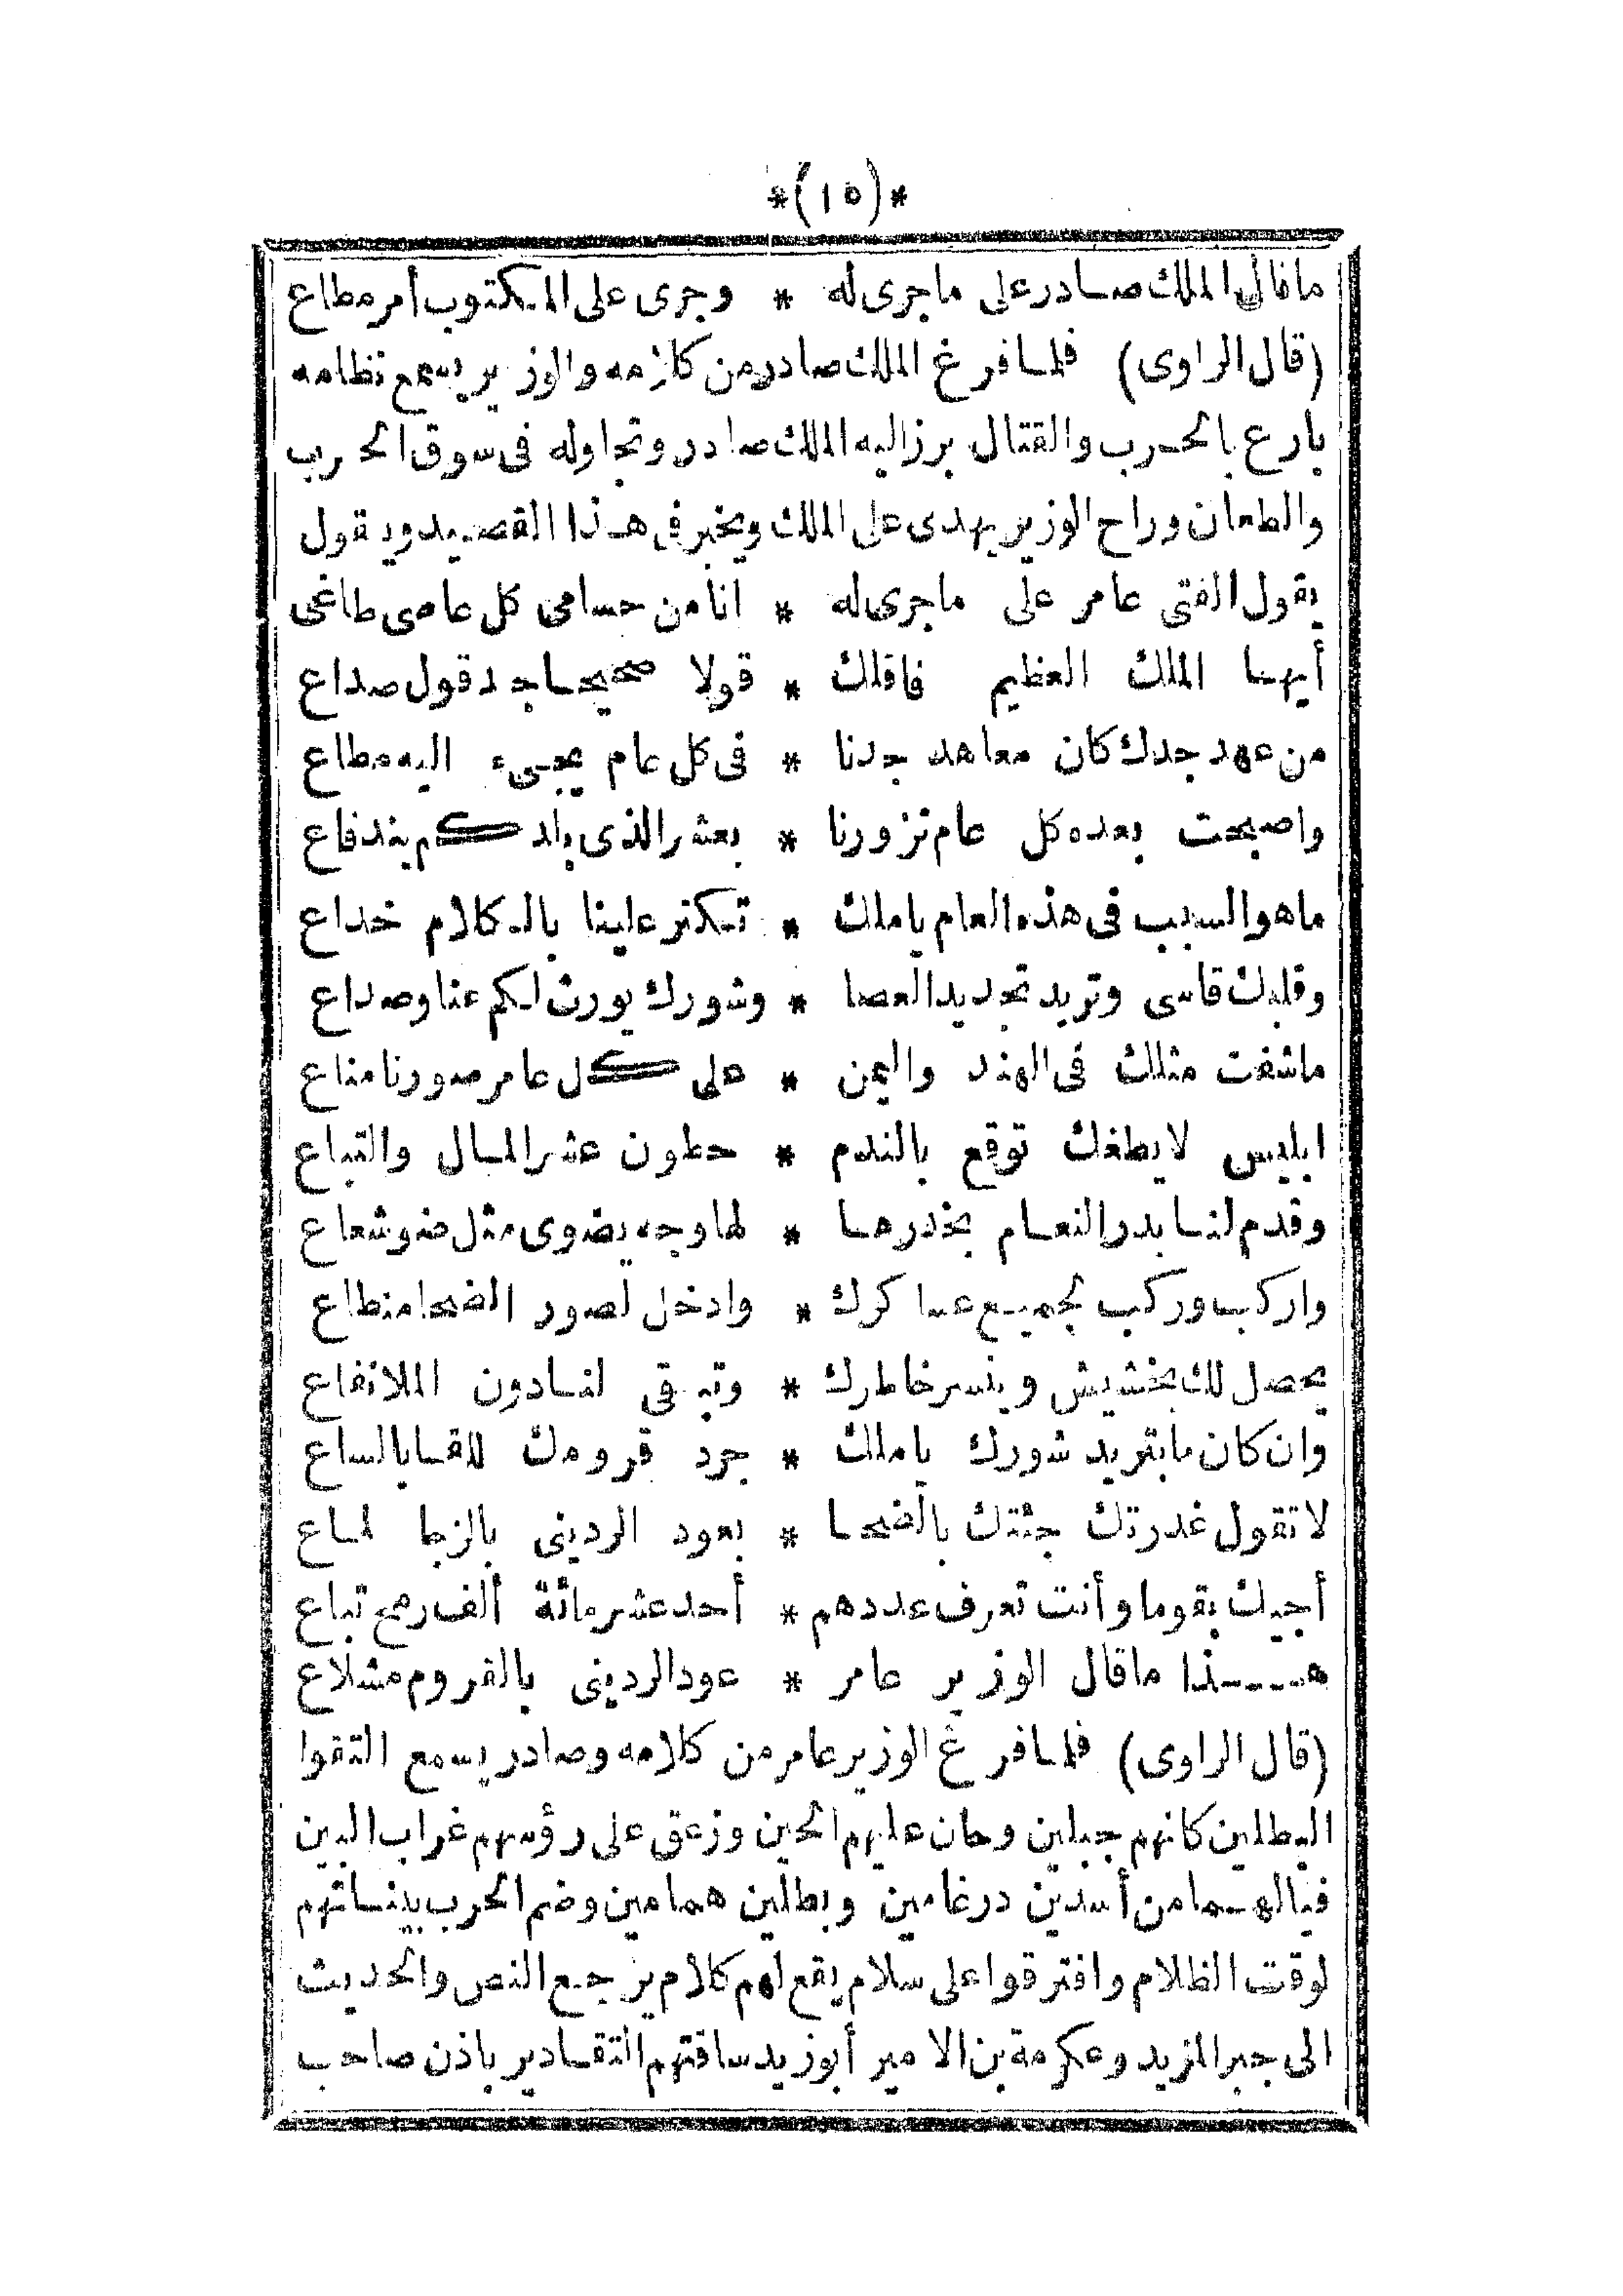 *(١٥)*
ماقال الملك صادر على ماجرى له * وجرى على المكتوب أمر مطاع
(قال الراوى) فلما فرغ الملك صادر من كلامه والوزير يسمع نظامه
بارع بالحرب والقتال برز اليه الملك صادر وتجاوله فى سوق الحرب
والطعان وراح الوزير يهدى على الملك ويخبر فى هذا القصيد ويقول
يقول الفتى عامر على ماجرى له * انا من حسامى كل عاصى طاغى
أيها الملك العظيم فاقلك * قولا صحيحا جد قول صداع
من عهد جدك كان معاهد جدنا * فى كل عام يجىء اليه مطاع
واصبحت بعده كل عام تزورنا * بعشر الذى بلدكم يندفاع
ماهو السبب فى هذه العام ياملك * تكتر علينا بالكلام خداع
وقلبك قاسى وتريد تجديد العصا * وشورك يورث لكم عنا وصداع
ماشفت مثلك فى الهند واليمن * على كل عامر صورنا مناع
ابليس لايطغك توقع بالندم * حطون عشر المال والتباع
وقدم لنا بدر النعام بخدرها * لها وجه يضوى مثل ضو شعاع
واركب وركب لجميع عساكرك * وادخل لصور الضحا منطاع
يحصل لك بخشيش وينسر خاطرك * وتبقى لنا دون الملا نفاع
وان كان مابتريد شورك ياملك * جرد قرومك للقا بالساع
لاتقول غدرتك جئتك بالضحا * بعود الردينى بالزجا لماع
أجيك بقوما وأنت تعرف عددهم * أحد عشر مائة ألف رمح تباع
هذا ماقال الوزير عامر * عود الردينى بالقروم مشلاع
(قال الراوى) فلما فرغ الوزير عامر من كلامه وصادر يسمع التقوا
البطلين كانهم جبلين وحان عليهم الحين وزعق على رؤسهم غراب البين
فيالهما من أسدين درغامين وبطلين همامين وضم الحرب بيناتهم
لوقت الظلام وافترقوا على سلام يقع لهم كلام يرجع النص والحديث
الى جبر المزيد وعكرمة بن الامير أبوزيد ساقتهم التقادير باذن صاحب